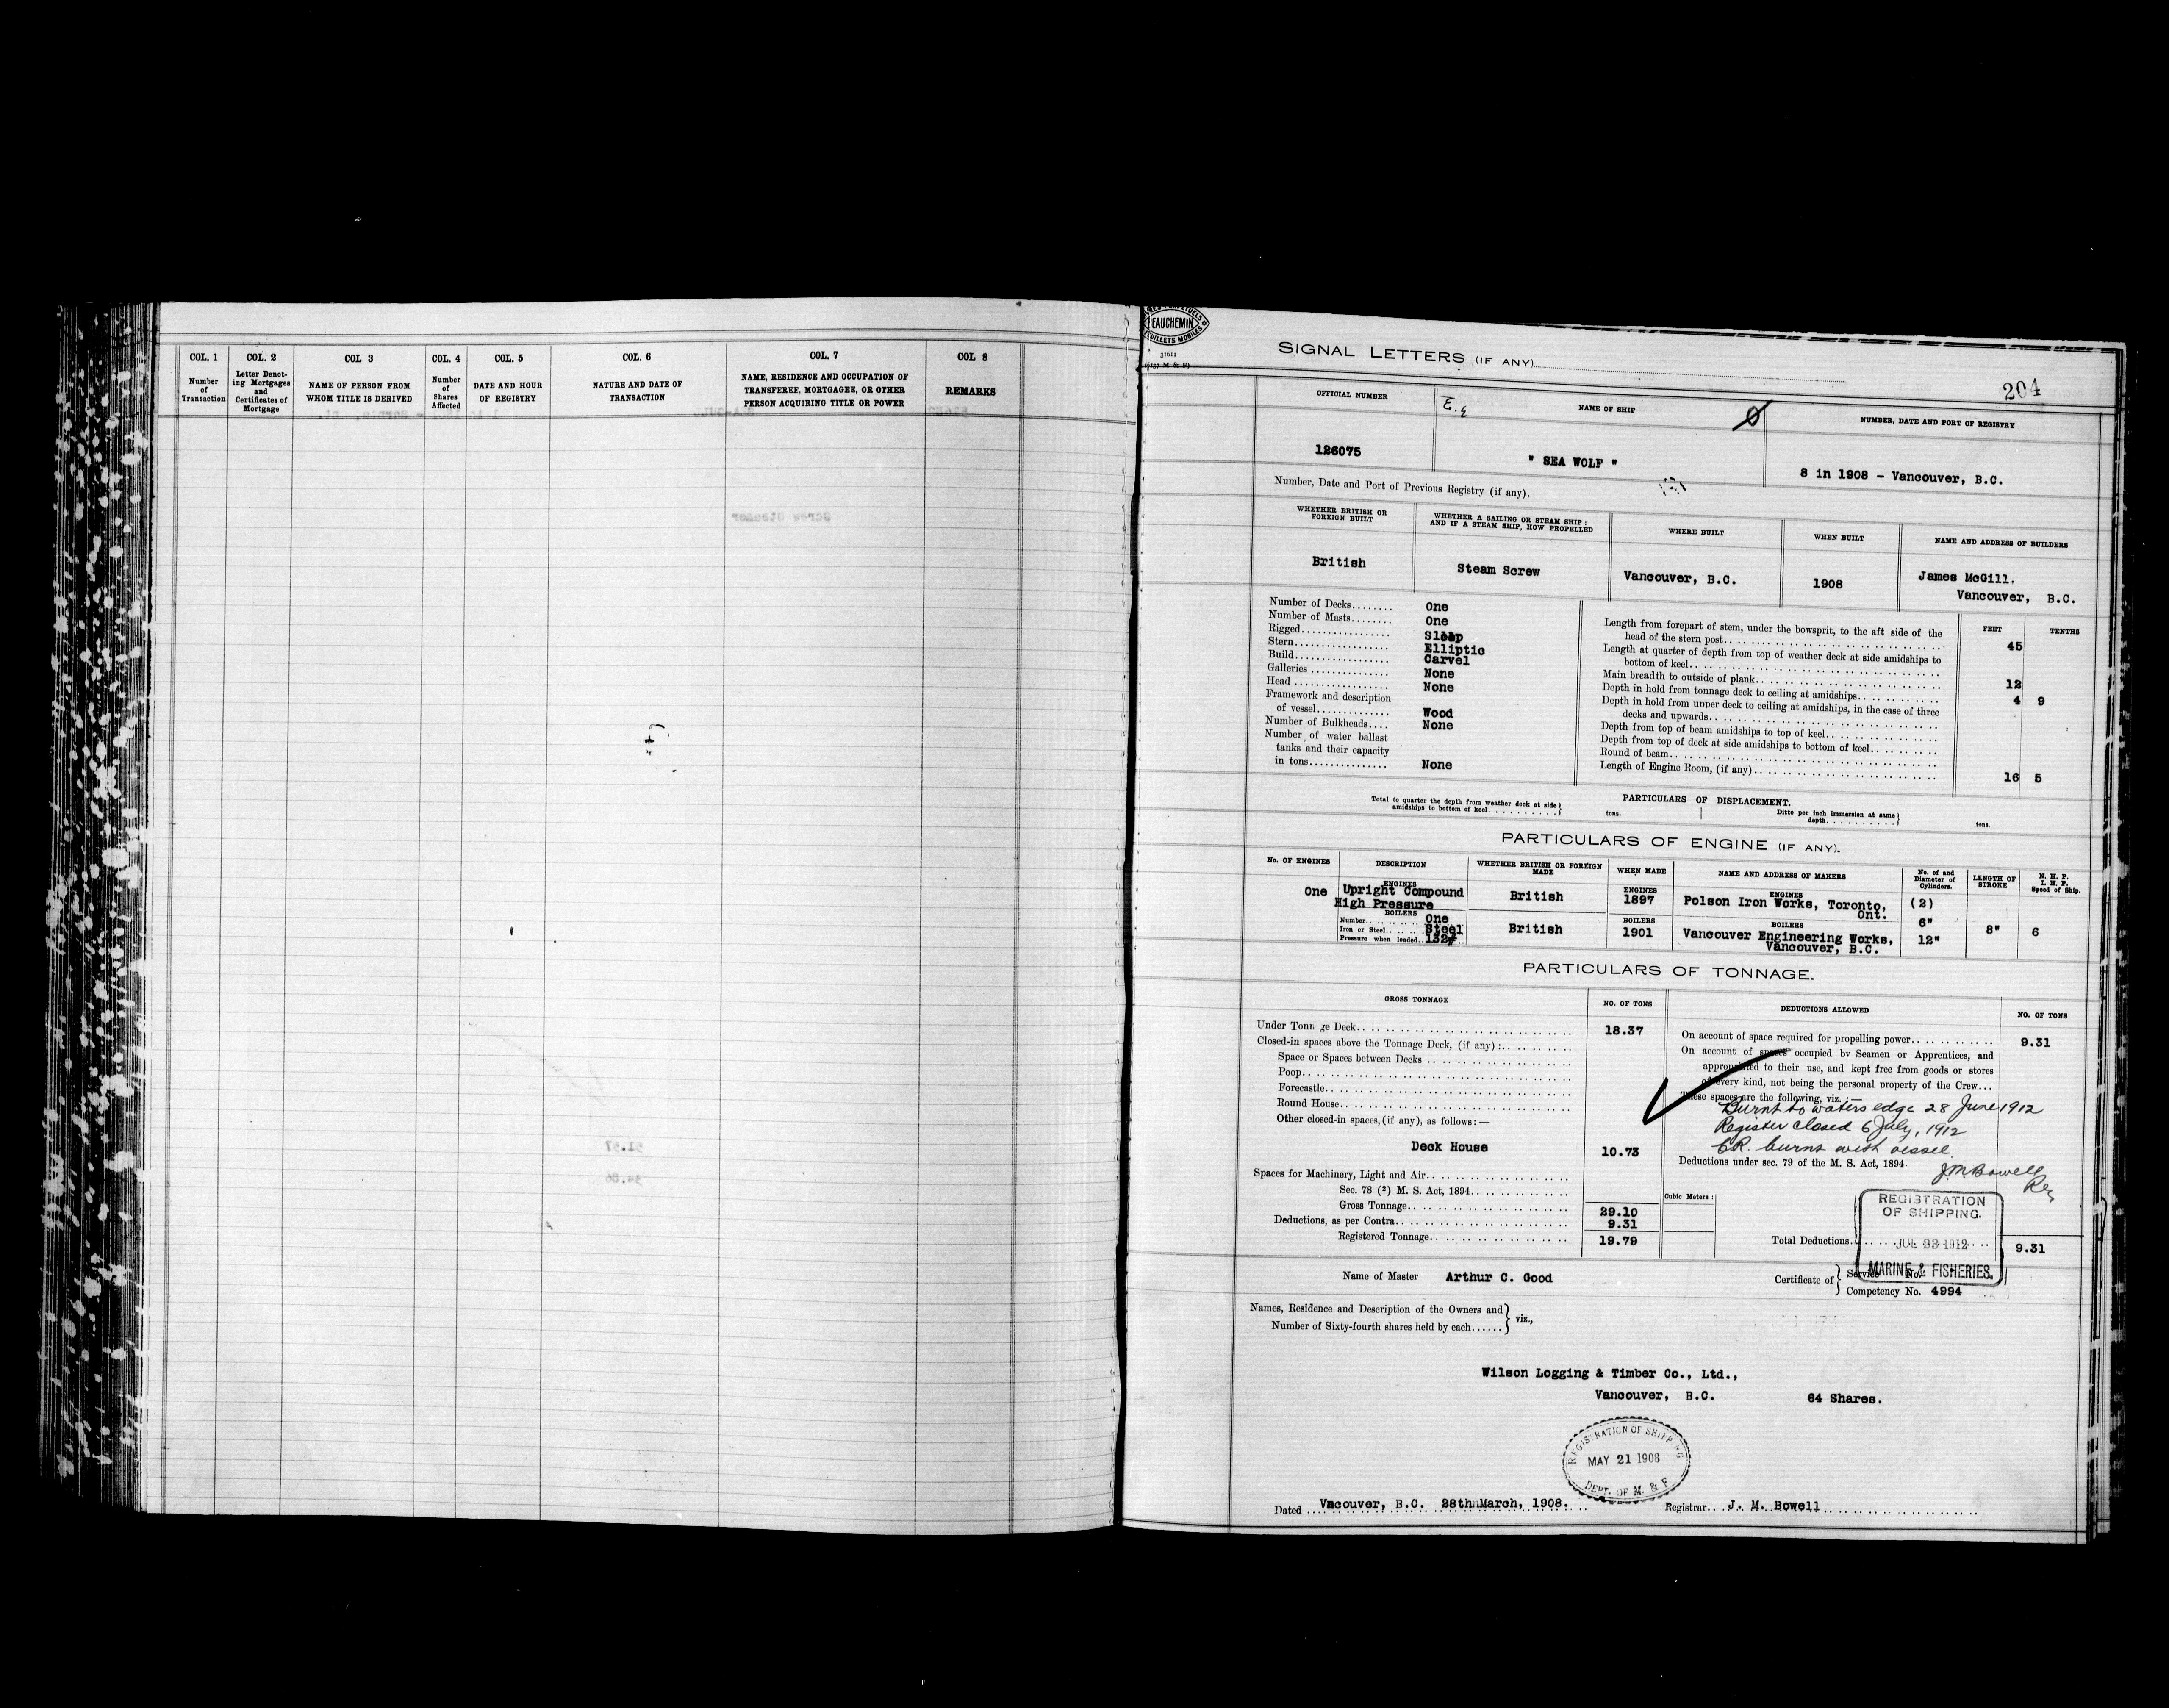 COL. 1
Number
of
Transaction
COL. 2
Letter Denot-
ing Mortgages
and
Certificates of
Mortgage
COL 3
NAME OF PERSON FROM
WHOM TITLE IS DERIVED
COL. 4
Number
of
Shares
Affected
COL. 5
DATE AND HOUR
OF REGISTRY
COL. 6
NATURE AND DATE OF
TRANSACTION
COL. 7
NAME, RESIDENCE AND OCCUPATION OF
TRANSFEREE, MORTGAGEE, OR OTHER
PERSON ACQUIRING TITLE OR POWER
COL 8
REMARKS
EAUCHEMIN
31611
SIGNAL LETTERS (IF ANY)
204
OFFICIAL NUMBER
126075
NAME OF SHIP
" SEA WOLF "
NUMBER, DATE AND PORT OF REGISTRY
8 in 1908 - Vancouver, B.C.
Number, Date and Port of Previous Registry (if any).
WHETHER BRITISH OR
FOREIGN BUILT
British
WHETHER A SAILING OR STEAM SHIP:
AND IF A STEAM SHIP, HOW PROPELLED
Steam Screw
WHERE BUILT
Vancouver, B.C.
WHEN BUILT
1908
NAME AND ADDRESS OF BUILDERS
James McGill.
Vancouver, B.C.
Number of Decks........ One
Number of Masts........ One
Rigged................. Sloop
Stern.................. Elliptic
Build.................. Carvel
Galleries .............. None
Head .................. None
Framework and description
of vessel.............. Wood
Number of Bulkheads.... None
Number of water ballast
tanks and their capacity
in tons............... None
FEET TENTHS
Length from forepart of stem, under the bowsprit, to the aft side of the
head of the stern post.. 45
Length at quarter of depth from top of weather deck at side amidships to
bottom of keel..
Main breadth to outside of plank.. 12
Depth in hold from tonnage deck to ceiling at amidships.. 4 9
Depth in hold from upper deck to ceiling at amidships, in the case of three
decks and upwards..
Depth from top of beam amidships to top of keel..
Depth from top of deck at side amidships to bottom of keel..
Round of beam..
Length of Engine Room, (if any).. 16 5
PARTICULARS OF DISPLACEMENT.
Total to quarter the depth from weather deck at side
amidships to bottom of keel.. tons.
Ditto per inch immersion at same
depth.. tons.
PARTICULARS OF ENGINE (IF ANY).
No. OF ENGINES
One
DESCRIPTION
ENGINES
Upright Compound
High Pressure
BOILERS
Number.. One
Iron or Steel.. Steel
Pressure when loaded.. 132#
WHETHER BRITISH OR FOREIGN
MADE
British
British
WHEN MADE
ENGINES
1897
BOILERS
1901
NAME AND ADDRESS OF MAKERS
ENGINES
Polson Iron Works, Toronto,
Ont.
BOILERS
Vancouver Engineering Works,
Vancouver, B.C.
No. of and
Diameter of
Cylinders.
(2)
6"
12"
LENGTH OF
STROKE
8"
N. H. P.
I. H. P.
Speed of Ship.
6
PARTICULARS OF TONNAGE.
GROSS TONNAGE NO. OF TONS
Under Tonn ge Deck.. 18.37
Closed-in spaces above the Tonnage Deck, (if any) :..
Space or Spaces between Decks ..
Poop..
Forecastle..
Round House..
Other closed-in spaces, (if any), as follows: —
Deck House 10.73
Spaces for Machinery, Light and Air..
Sec. 78 (²) M. S. Act, 1894..
Gross Tonnage.. 29.10
Deductions, as per Contra.. 9.31
Registered Tonnage.. 19.79
Cubic Meters :
DEDUCTIONS ALLOWED NO. OF TONS
On account of space required for propelling power.. 9.31
On account of spaces occupied by Seamen or Apprentices, and
appropriated to their use, and kept free from goods or stores
of every kind, not being the personal property of the Crew...
These spaces are the following, viz. :—
Burnt to waters edge 28 June 1912
Register closed 6 July, 1912
C.R. burnt with vessel.
Deductions under sec. 79 of the M. S. Act, 1894
J M Bowell
Reg
REGISTRATION
OF SHIPPING.
JUL 23 1912
MARINE & FISHERIES.
Total Deductions.. 9.31
Name of Master Arthur C. Good
Certificate of
Service No.
Competency No. 4994
Names, Residence and Description of the Owners and
Number of Sixty-fourth shares held by each...... viz.,
Wilson Logging & Timber Co., Ltd.,
Vancouver, B.C. 64 Shares.
REGISTRATION OF SHIPPING
MAY 21 1908
DEPT. OF M. & F.
Dated Vacouver, B.C. 28th March, 1908.
Registrar.. J. M. Bowell